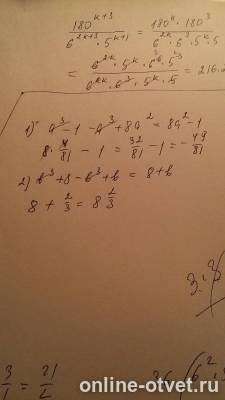 180^(k+3) / (6^(2k+3) · 5^(k+1)) = 180^k · 180^3 / (6^(2k) · 6^3 · 5^k · 5
= 6^(2k) · 5^k · 6^6 · 5^3 / (6^(2k) · 6^3 · 5^k · 5) = 216.
1) a^3 - 1 - a^3 + 8a^2 = 8a^2 - 1
8 · 4/81 - 1 = 32/81 - 1 = - 49/81
2) b^3 + 8 - b^3 + b = 8 + b
8 + 2/3 = 8 2/3
online-otvet.ru